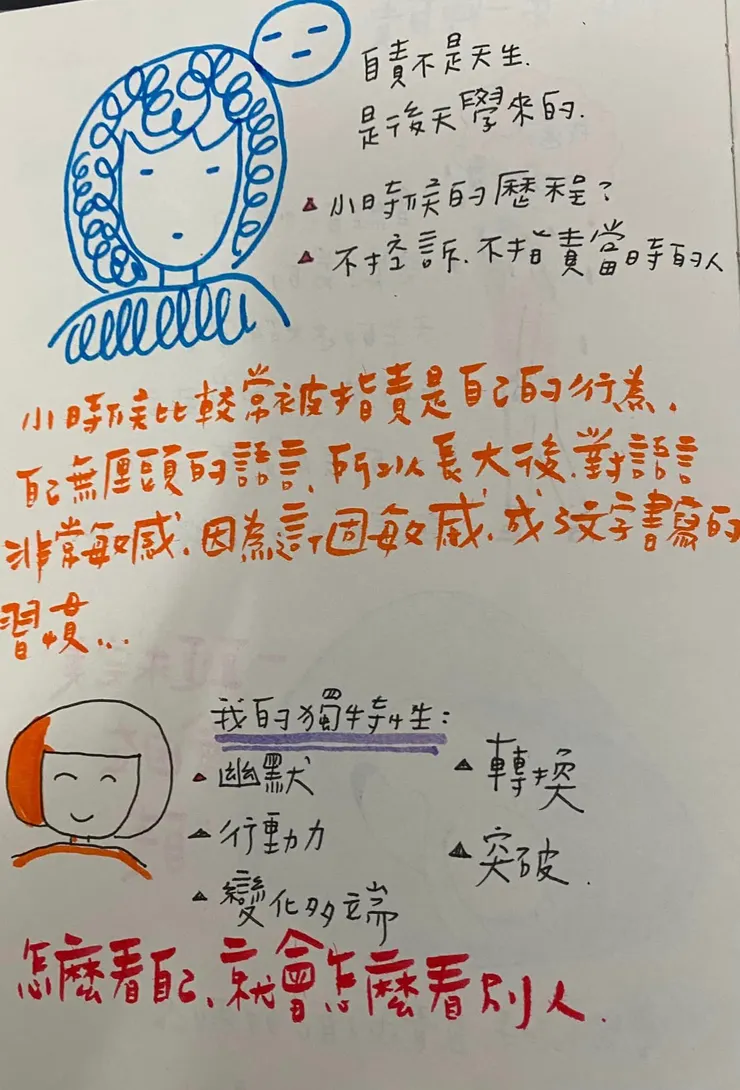 自責不是天生.
是後天學來的.
小時候的歷程?
不控訴.不指責當時的人
小時候比較常被指責是自己的行為.
自己無厘頭的語言.所以長大後.對語言
非常敏感.因為這個敏感.成了文字書寫的
習慣...
我的獨特性:
幽默
行動力
變化多端
轉換
突破.
怎麼看自己、就會怎麼看別人.